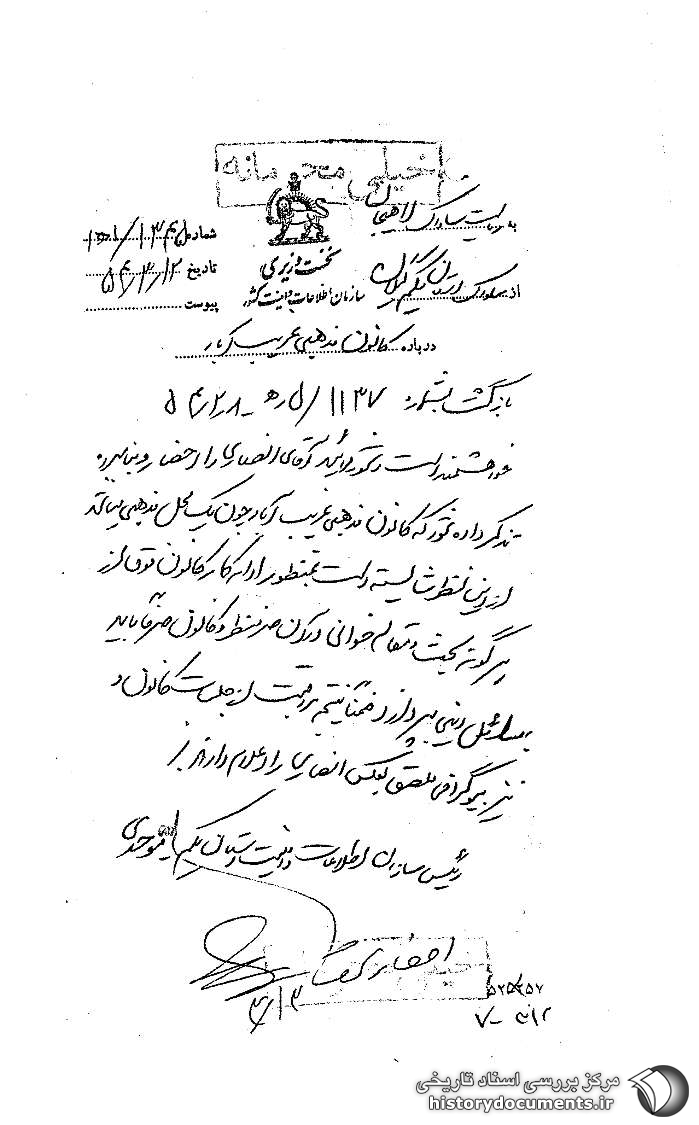 خیلی محرمانه
به ریاست ساواک لاهیجان
از ساواک استان یکم گیلان
نخست وزیری
سازمان اطلاعات و امنیت کشور
شماره
تاریخ ۵۴/۳/۱۲
پیوست
درباره کانون مذهبی غریب آباد
بازگشت بشماره ۱۱۳۷/ه۱ - ۵۴/۲/۲۸
خواهشمند است دستور فرمائید آقای انصاری را احضار و بنامبرده
تذکر داده شود که کانون مذهبی غریب آباد چون یک محل مذهبی میباشد
از این نظر شایسته است بمنظور ادامه کار کانون فوق از
هرگونه بحث و مقاله خوانی در آن صرفنظر و کانون صرفاً باید
به مسائل دینی بپردازد ضمناً نتیجه مراقبت از جلسات کانون و
نیز بیوگرافی ملصق بعکس انصاری را اعلام دارند.
رئیس سازمان اطلاعات و امنیت استان یکم
خیلی محرمانه
مرکز بررسی اسناد تاریخی
historydocuments.ir